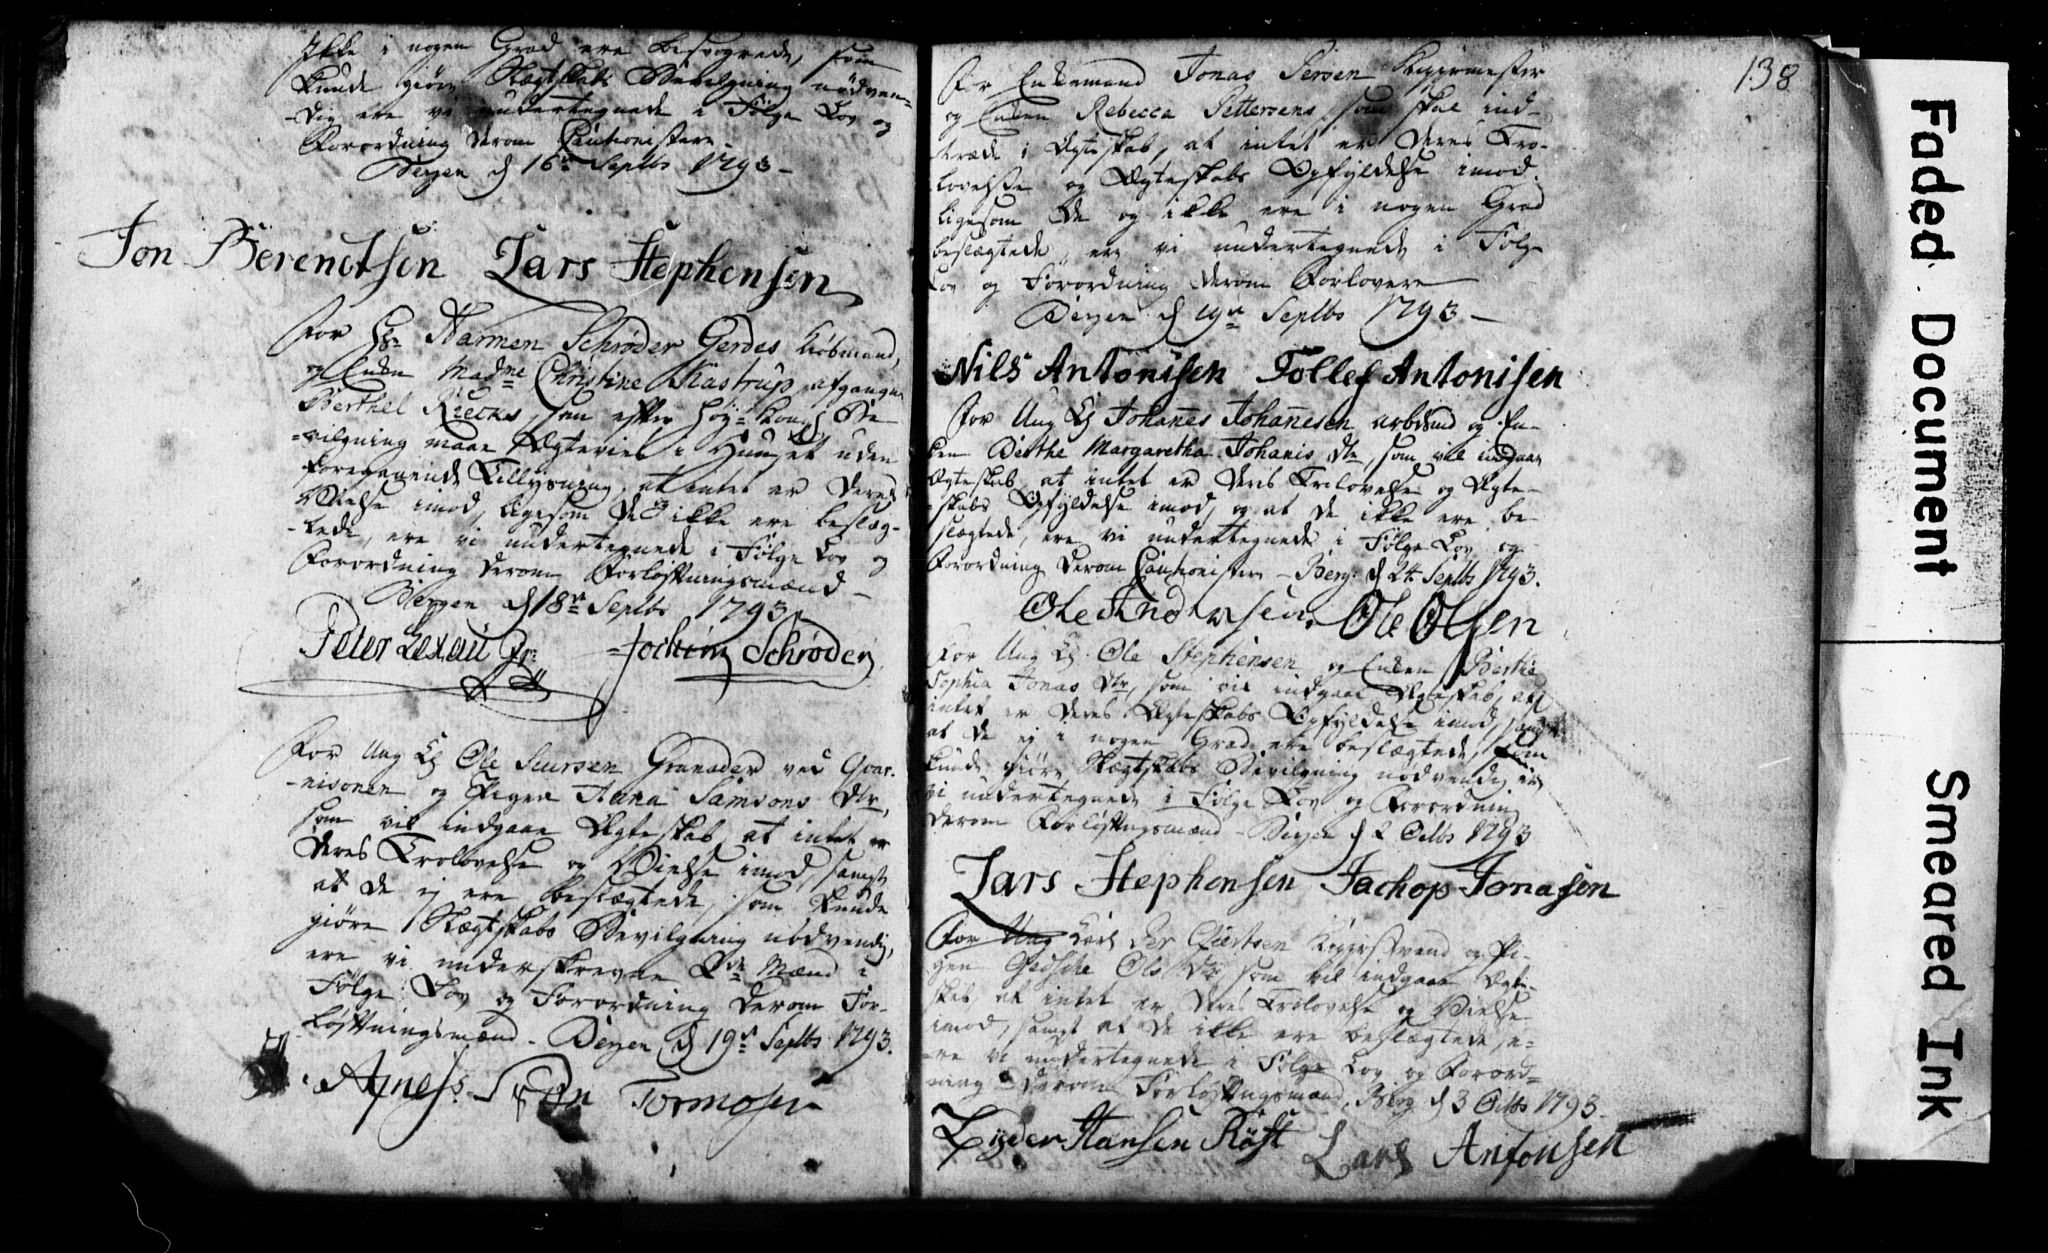 ikke i nogen Grad ere besvogrede, som
kunde giøre Slægtskabs Bevilgning nødven-
dig ere vi undertegnede i Følge Lov og
Forordning derom Cautionister
Bergen d 16n Septbr 1793 -
Jon Berendtsen Lars Stephensen
For Hr Harmen Schrøder Gerdes Kiøbmand,
og Enken Madme Christine Kastrup, afgangne
Berthel Riecks, som efter Høy= Kongl Be
=vilgning maae Ægtevies i Huuset uden
foregaaende Tillysning, at intet er deres
Vielse imod, ligesom de ikke ere beslæg-
-tede, ere vi undertegnede i Følge Lov og
Forordning derom Forløftningsmænd -
Bergen d 18n Septbr 1793
Peter Lexau Jr: Jochim Schrøder
For Ung Kl Ole Siursen Granader ved Guar-
-nisonen og Pigen Anna Samsons dtr,
som vil indgaae Ægteskab, at intet er
deres Trolovelse og Vielse imod, samt
at de ej ere beslægtede, som kunde
giøre Slægtskabs Bevilgning nødvendig,
ere vi underskrevne 2de Mænd i
Følge Lov og Forordning derom For-
løftningsmænd - Bergen d 19n Septbr 1793.
Tormosen
138
For Enkemand Jonas Persen
og Enken Rebecca Pettersens, som skal ind-
træde i Ægteskab, at intet er deres Tro-
lovelse og Ægteskabs Opfyldelse imod,
ligesom de og ikke ere i nogen Grad
beslægtede, ere vi undertegnede i Følge
Lov og Forordning derom Forlovere
Bergen d 19n Septbr 1793 -
Nils Antonisen Tollef Antonisen
For Ung Kl Johannes Johannesen arbdsmd og En-
ken Berthe Margaretha Johanis dtr, som vil indgaae
Ægteskab, at intet er deres Trolovelse og Ægte-
skabs Opfyldelse imod, og at de ikke ere be-
slægtede, ere vi undertegnede i Følge Lov og
Forordning derom Cautionister - Berg: d 24 Septbr 1793.
Ole Andersen, Ole Olsen
For Ung Kl Ole Stephensen og Enken Berthe
Sophia Jonas dtr, som vil indgaae Ægteskab, at
intet er deres Ægteskabs Opfyldelse imod, samt
at de ej i nogen Grad ere beslægtede, som
kunde giøre Slægtskabs Bevilgning nødvendig, ere
vi undertegnede i Følge Lov og Forordning
derom Forløftngsmænd - Bergen d 2 Octbr 1793
Lars Stephensen Jachop Jonasen
For Ung Karl Per Giertsen Kipersvend og Pi-
gen Gedsche Ols dtr som vil indgaae Ægte-
skab, at intet er deres Trolovelse og Vielse
imod, samt at de ikke ere beslægtede, e-
re vi undertegnede i Følge Lov og Forord-
ning derom Forløftngsmænd, Berg d 3 Octbr 1793.
Lyder Hansen Röst Lars Antonsen
Faded Document
Smeared Ink